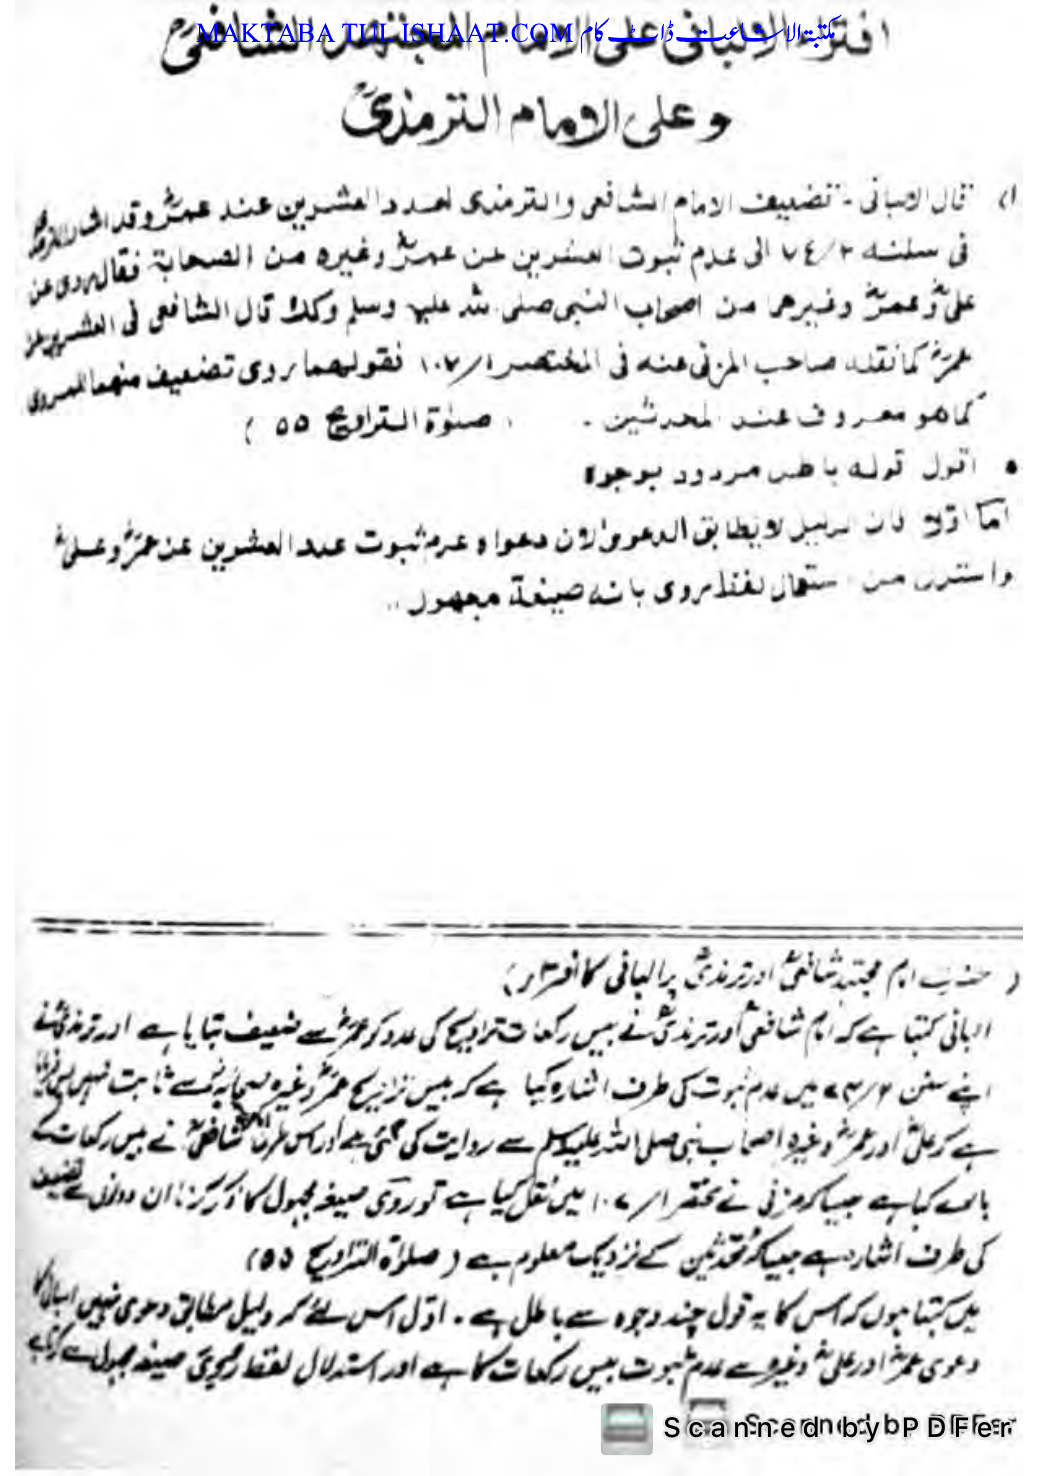 افتراء الالبانی علی الامام المجتهد الشافعیؒ
MAKTABA TUL ISHAAT.COM مکتبۃ الاشاعت ڈاٹ کام
وعلی الامام الترمذیؒ
(۱) قال الالبانی - تضعیف الامام الشافعی والترمذی لعدد العشرین عند عمرؓ وقد اشار الترمذی
فی سننه ۷٤/۲ الی عدم ثبوت العشرین عن عمرؓ وغیره من الصحابة فقال روی عن
علیؓ وعمرؓ وغیرهما من اصحاب النبی صلی الله علیه وسلم وکذا قال الشافعی فی العشرین عن
عمرؓ کما نقله صاحب المزنی عنه فی المختصر ۱۰۷/۱ فقولهما روی تضعیف منهما للمروی
کما هو معروف عند المحدثین - ( صلوٰة التراویح ۵۵ )
• اقول قوله باطل مردود بوجوه
اما اوّلاً فان الدلیل لا یطابق الدعویٰ لان دعواه عدم ثبوت عدد العشرین عن عمرؓ وعلیؓ
واستدل من استعمال لفظ روی بانه صیغة مجهول ..
( حضرت امام مجتہد شافعیؒ اور ترمذیؒ پر البانی کا افتراء )
البانی کہتا ہے کہ امام شافعیؒ اور ترمذیؒ نے بیس رکعات تراویح کی عدد کو عمرؓ سے ضعیف بتایا ہے اور ترمذیؒ نے
اپنے سنن ۷۴/۲ میں عدم ثبوت کی طرف اشارہ کیا ہے کہ بیس تراویح عمرؓ وغیرہ صحابہؓ سے ثابت نہیں پس فرمایا
ہے کہ علیؓ اور عمرؓ وغیرہ اصحاب نبی صلی اللہ علیہ وسلم سے روایت کی گئی ہے اور اس طرح امام شافعیؒ نے بیس رکعات کے
بارے کہا ہے جیسا کہ مزنی نے مختصر ۱۰۷/۱ میں نقل کیا ہے تو روی صیغہ مجہول کا ذکر کرنا ان دونوں سے تضعیف
کی طرف اشارہ ہے جیسا کہ محدثین کے نزدیک معلوم ہے ( صلوٰة التراویح ۵۵)
میں کہتا ہوں کہ اس کا یہ قول چند وجوہ سے باطل ہے ۔ اوّل اس لئے کہ دلیل مطابق دعوی نہیں البانی کا
دعوی عمرؓ اور علیؓ وغیرہ سے عدم ثبوت بیس رکعات کا ہے اور استدلال لفظ رُوِیَ صیغہ مجہول سے کرتا ہے
Scanned by PDFer